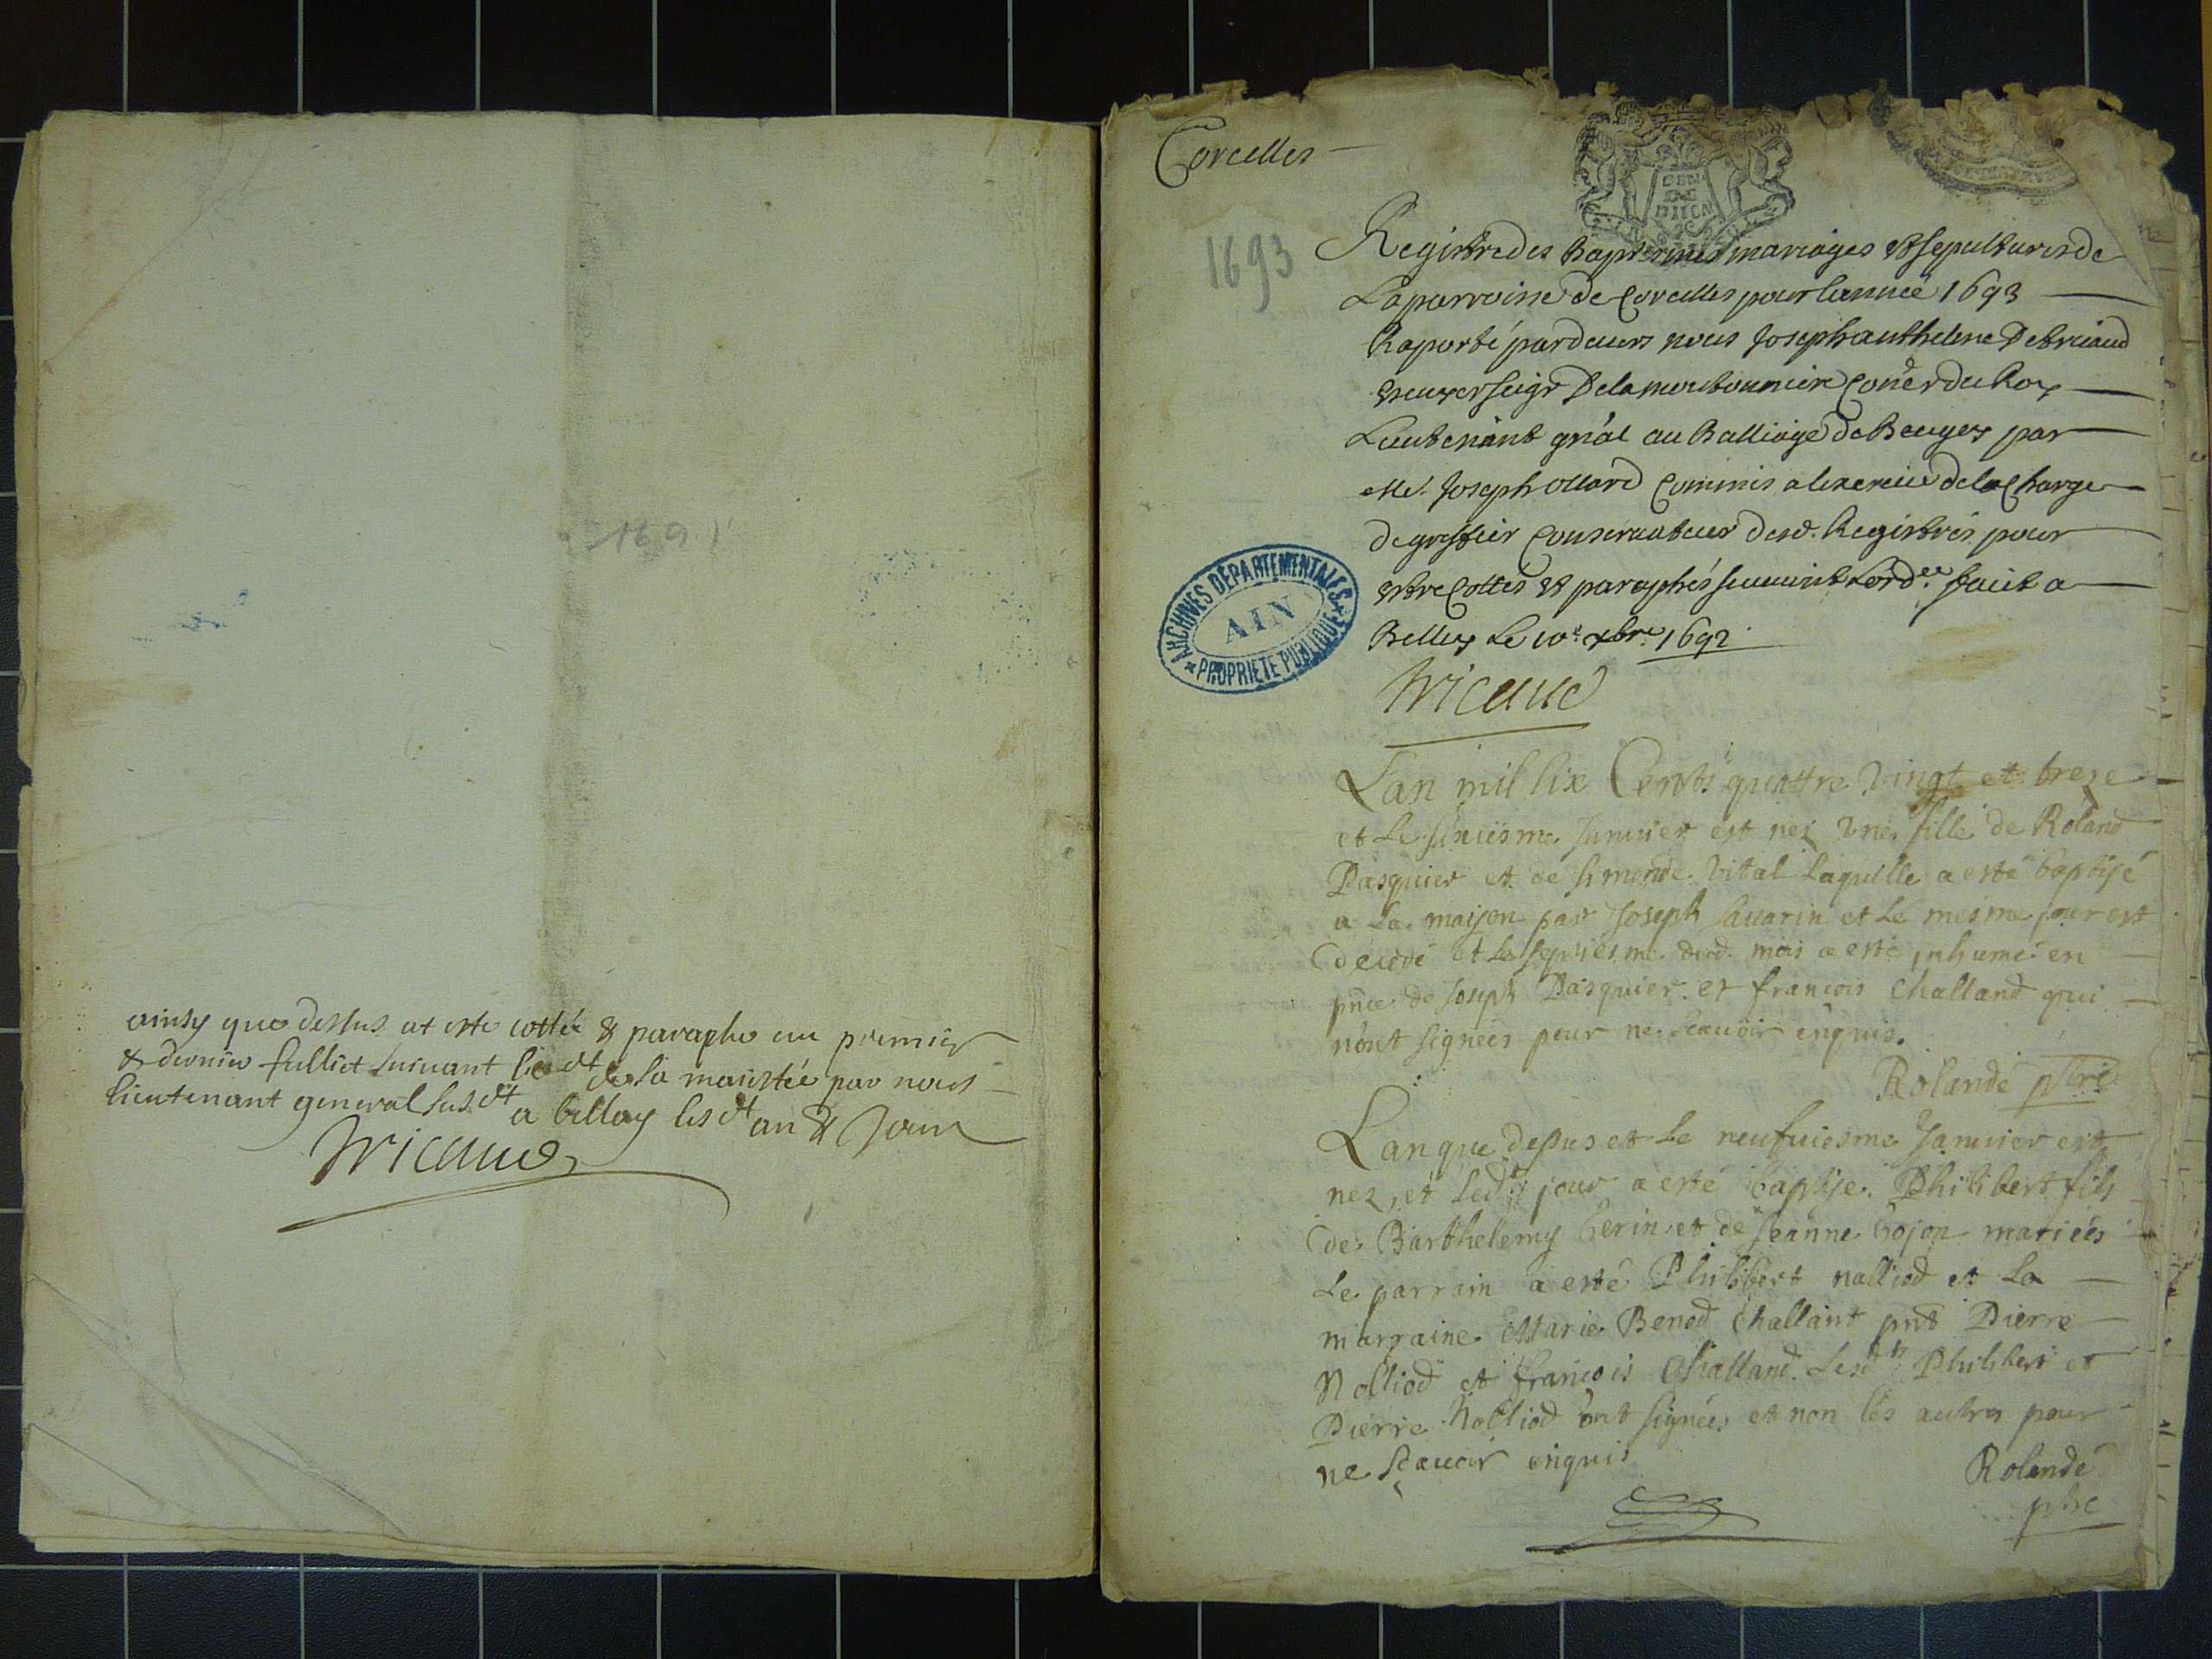 1691
ainsy que dessus at esté cottée & paraphé au premier
& dernier fulliet suivant l'edt de sa maiestée par nous
lieutenant general susdt a bellay lesdt an & Jour
Tricaud
Corcelles
GEN
DE
DIION
1693
Registre des Baptesmes mariages et sepultures de
La parroisse de Corcelles pour l'année 1693
Raporté pardevers nous Joseph anthelme De tricaud
seigr Dela Coner du Roy
Lieutenant gnal au Balliage de Beugey par
Me. Joseph ollard Commis a lexercice dela Charge
de greffier Conservateur desd. Registres pour
estre Cottés et paraphés suivant Lord.ce faict a
Belley Le 10e. xbre. 1692
Tricaud
ARCHIVES DÉPARTEMENTALES
AIN
* PROPRIÉTÉ PUBLIQUE *
L'an mil six Cents quattre vingt et treze
et Le Januier est nez une fille de Roland
Pasquier et de simonde Vital Laquelle a esté baptisé
a La maison par Joseph Sauarin et Le mesme jour est
decedé et Le septiesme dud. mois a esté inhumé en
pnce de Joseph Pasquier et francois Challand qui
n'ont signées pour ne scauoir enquis.
Rolande ptre
L'an que dessus et Le neufuiesme Januier est
nez, et led.t jour a esté baptisé Philibert fils
de Barthelemy Gerin et de Jeanne bojon mariées
Le parrain a esté Philibert nalliod et La
marraine Marie Benod Challand pnt Pierre
Nolliod et francois Challand. Lesdts Philibert et
Pierre Nolliod ont signées et non les autres pour
ne scauoir enquis
Rolande
ptre